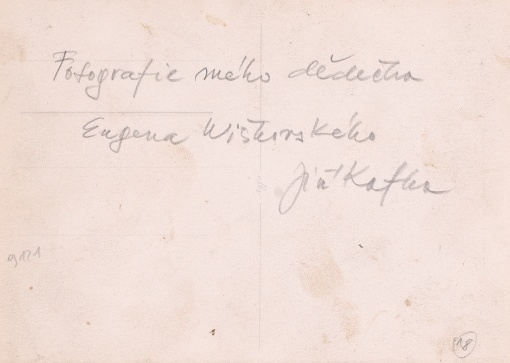 Fotografie mého dědečka
Eugena Wiškovského
Jiří Kafka
9121
18